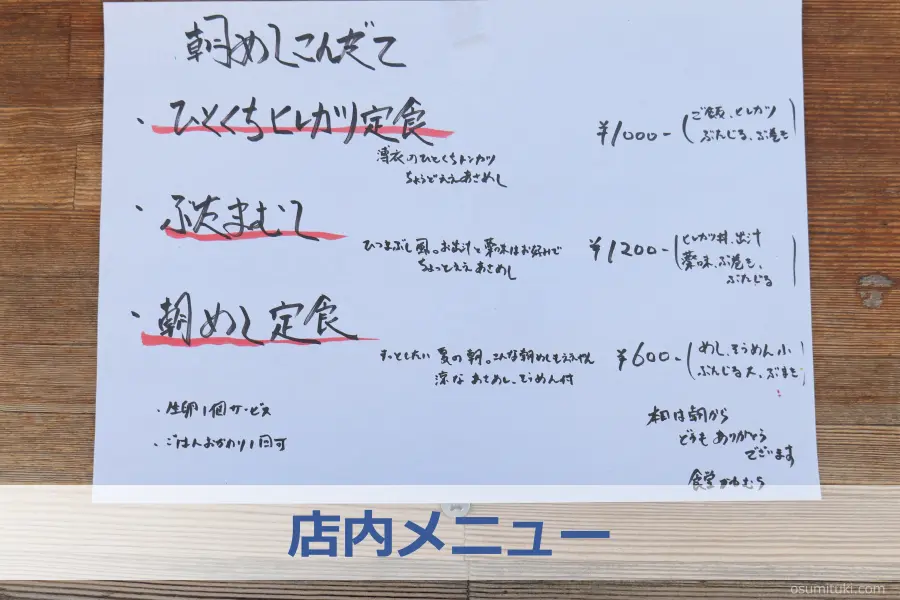 朝めしこんだて
・ひとくちヒレカツ定食
¥1000-
ご飯、ヒレカツ
ぶたじる、ぶ巻き
薄衣のひとくちトンカツ
ちょうどええあさめし
・ぶたまむし
ひつまぶし風。お出汁と薬味はお好みで
ちょっとええあさめし
¥1200-
ヒレカツ丼、出汁
薬味、ぶ巻き、
ぶたじる
・朝めし定食
夏の朝。こんな朝めしもええやん
涼なあさめし、そうめん付
¥600-
めし、そうめん小
ぶたじる大、ぶ巻き
・生卵1個サービス
・ごはんおかわり1回可
本日は朝から
どうもありがとう
ございます
食堂かわむら
店内メニュー
osumituki.com